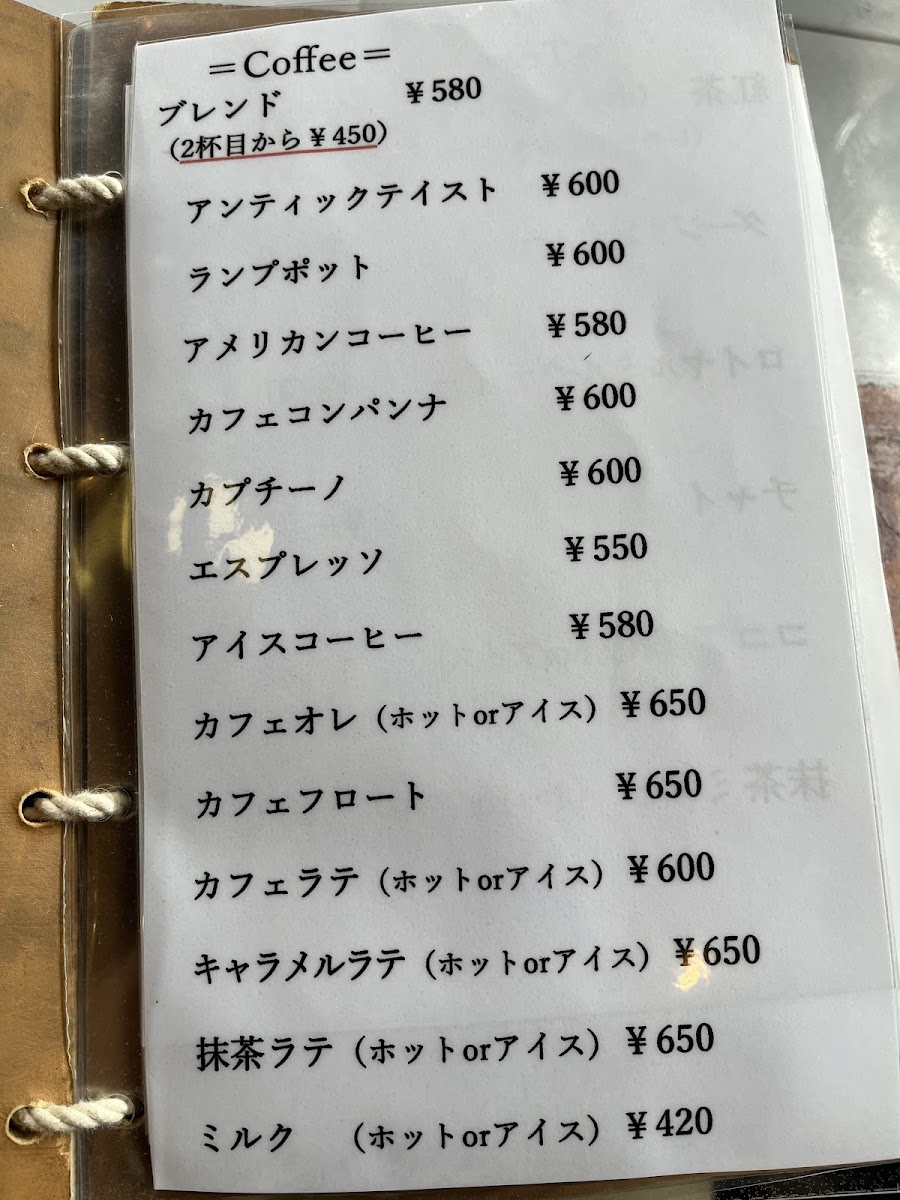 ＝Coffee＝
ブレンド ￥580
（2杯目から￥450）
アンティックテイスト ￥600
ランプポット ￥600
アメリカンコーヒー ￥580
カフェコンパンナ ￥600
カプチーノ ￥600
エスプレッソ ￥550
アイスコーヒー ￥580
カフェオレ（ホットorアイス） ￥650
カフェフロート ￥650
カフェラテ（ホットorアイス） ￥600
キャラメルラテ（ホットorアイス） ￥650
抹茶ラテ（ホットorアイス） ￥650
ミルク （ホットorアイス） ￥420